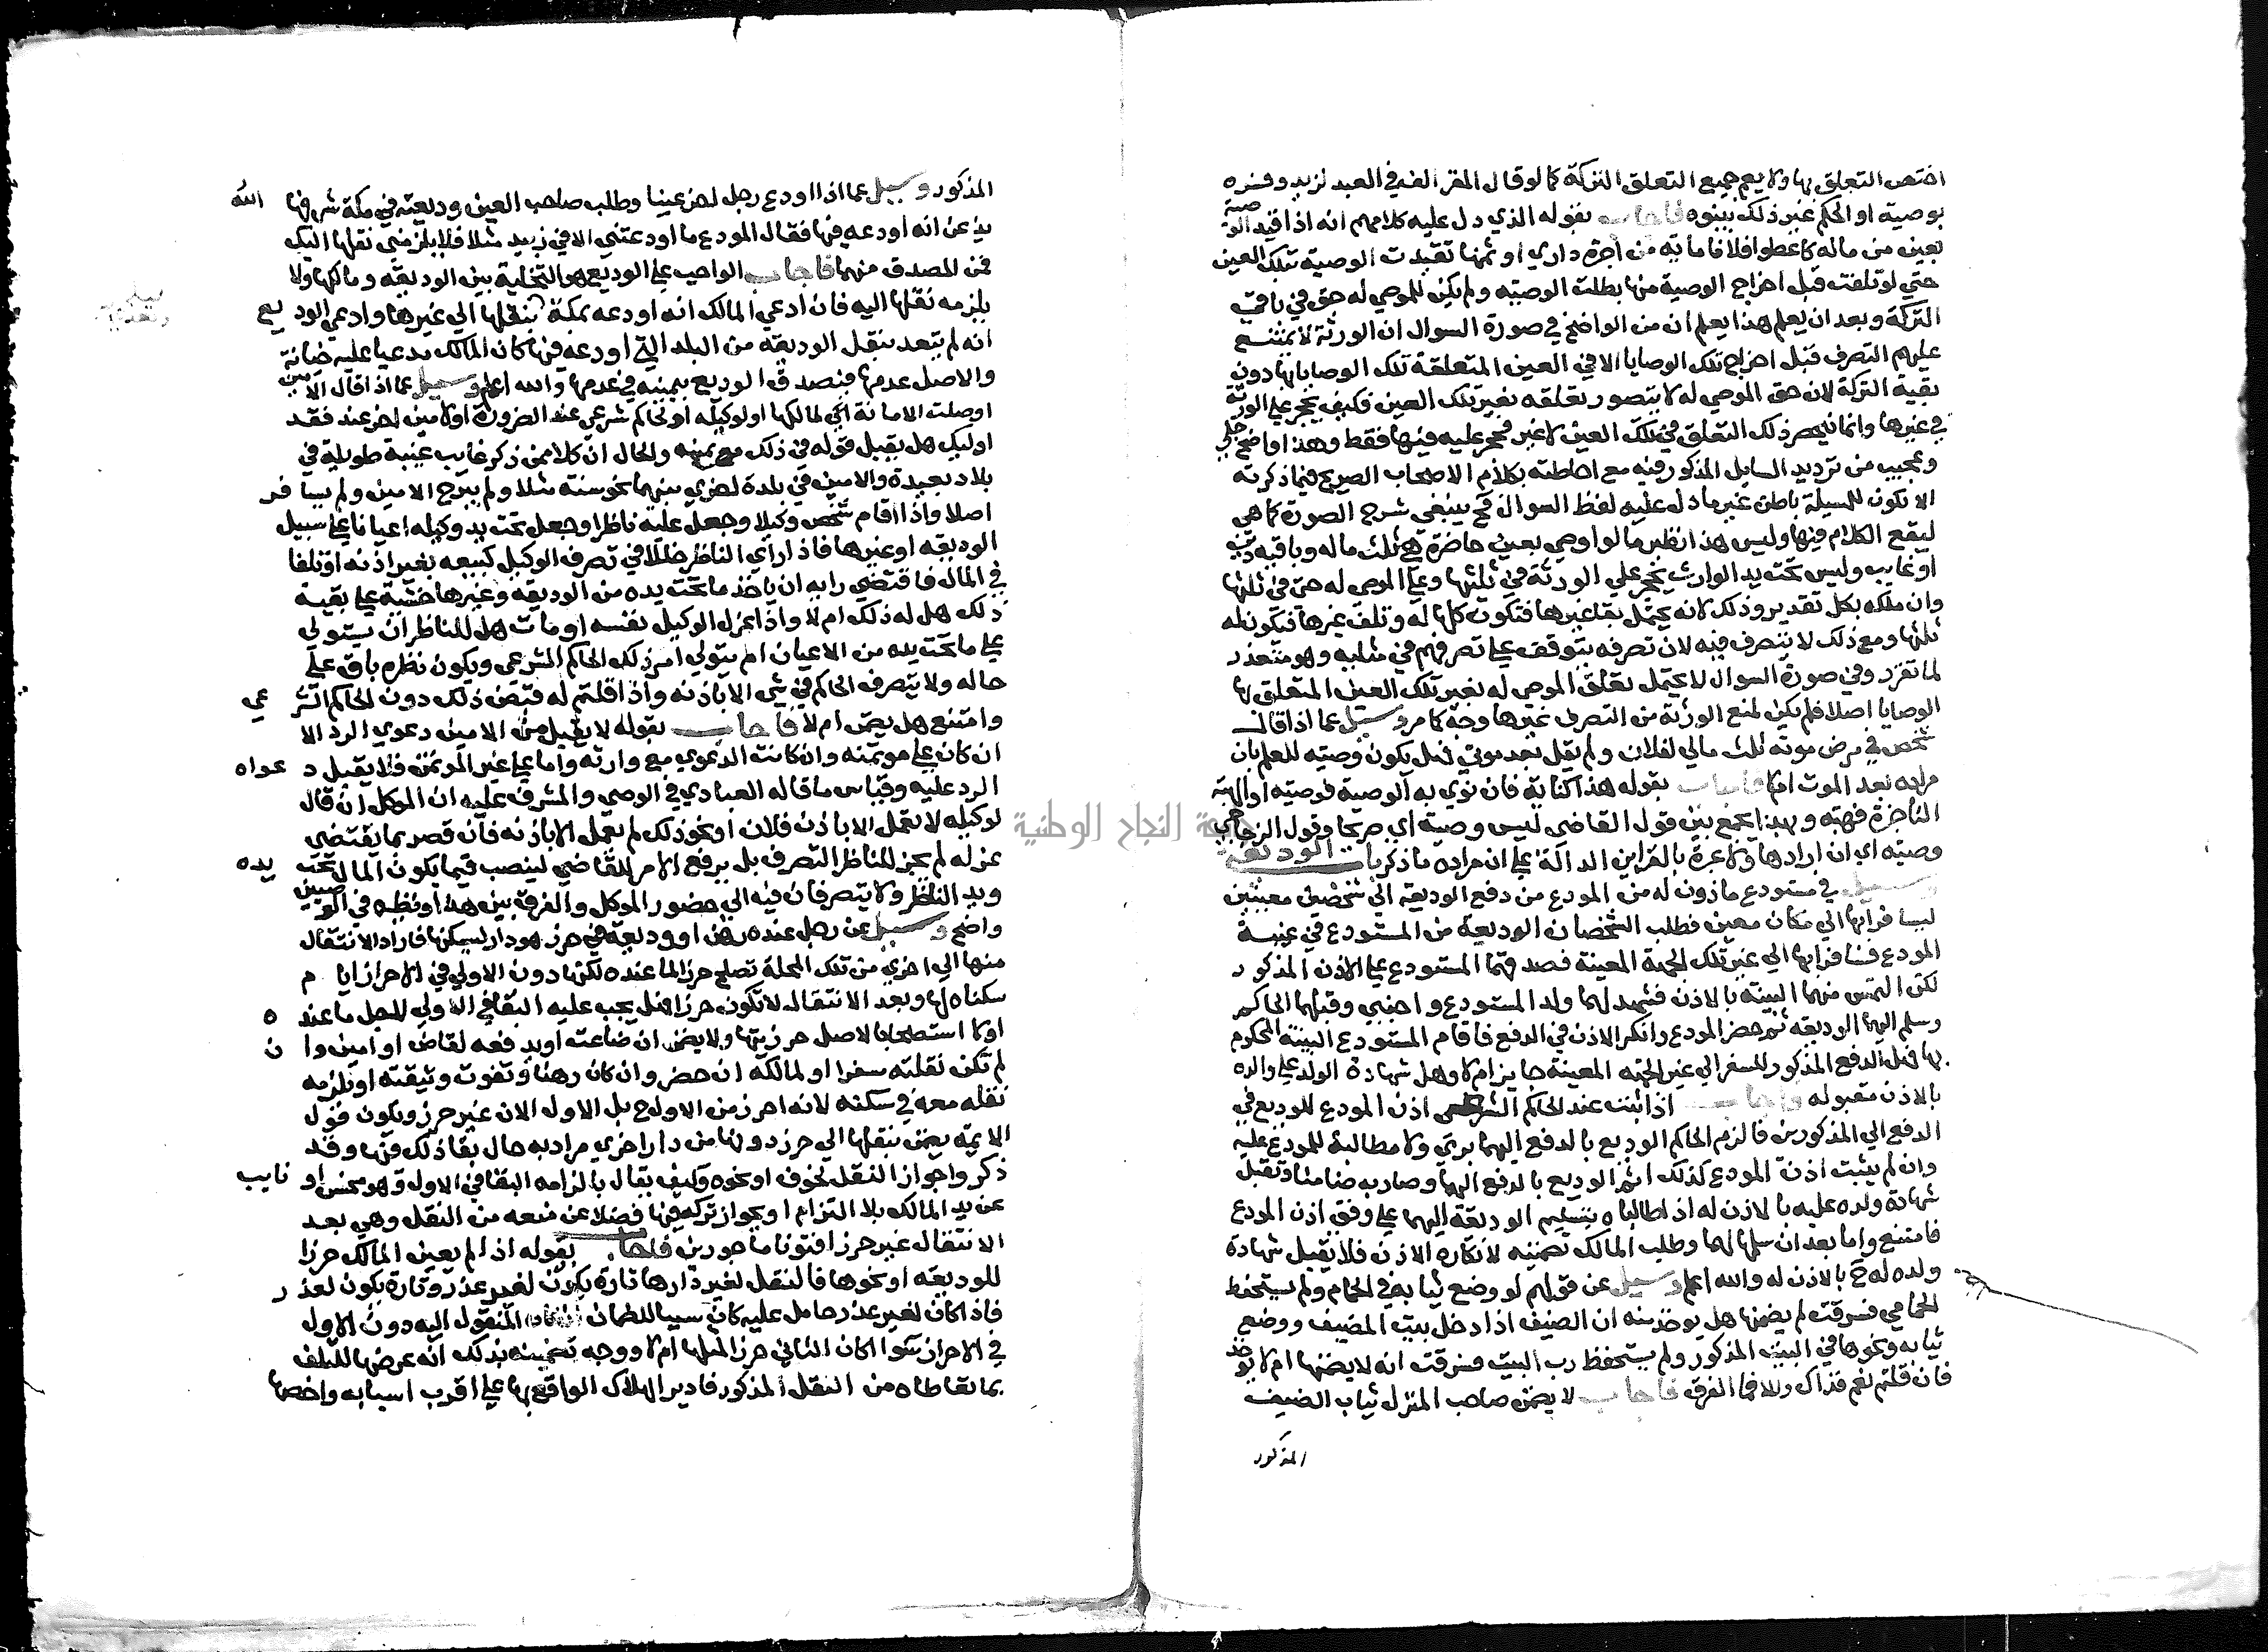 اختص التعلق بها ولا يعم جميع التعلق التركة كما لو قال المقر الفه في العبد لزيد وفسره
بوصية او الحكم غير ذلك بينوه فاجاب بقوله الذي دل عليه كلامهم انه اذا قيد الوصية
بعين من ماله كاعطوا فلانا مائة من اجرة داري او ثمنها تقيدت الوصية بتلك العين
حتي لو تلفت قبل اخراج الوصية منها بطلت الوصية ولم يكن للموصي له حق في باقي
التركة وبعد ان يعلم هذا يعلم ان من الواضح في صورة السوال ان الورثة لا يمتنع
عليهم التصرف قبل اخراج تلك الوصايا الا في العين المتعلقة تلك الوصايا بها دون
بقية التركة لان حق الموصي له لا يتصور تعلقه بغير تلك العين فكيف يحجر علي الورثة
في غيرها وانما ينحصر ذلك التعلق في تلك العين لا غير فحجر عليه فيها فقط وهذا واضح جلي
وعجيب من ترديد السايل المذكور فيه مع احاطته بكلام الاصحاب الصريح فيما ذكرته
الا تكون للمسيلة باطن غير ما دل عليه لفظ السوال فح ينبغي شرح الصورة كما هي
ليقع الكلام فيها وليس هذا نظير ما لو اوصي بعين حاضرة هي ثلث ماله وباقيه دين
او غايب وليس تحت يد الوارث يحجر علي الورثة في ثلثيها وعلي الموصي له حتي في ثلثها
وان ملكه بكل تقدير وذلك لانه يحتمل بقا غيرها فتكون كلها له وتلف غيرها فيكون له
ثلثها ومع ذلك لا يتصرف فيه لان تصرفه يتوقف علي تصرفهم في مثليه وهو متعذر
لما تقرر وفي صورة السوال لا يحتمل تعلق الموصي له بغير تلك العين المتعلق بها
الوصايا اصلا فلم يكن لمنع الورثة من التصرف غيرها وجه كما مر وسيل عما اذا قال
شخص في مرض موته ثلث مالي لفلان ولم يقل بعد موتي فهل يكون وصية للعلم بان
مراده بعد الموت ام لا فاجاب بقوله هذا كناية فان نوي به الوصية فوصية او الهبة
الناجزة فهبة وبهذا يجمع بين قول القاضي ليس وصية اي صريحا وقول الزجاجي
وصية اي ان ارادها ولا عبرة بالقراين الدالة علي ان مراده ما ذكر باب الوديعة
وسيل في مستودع ماذون له من المودع من دفع الوديعة الي شخصين معينين
ليسافرا بها الي مكان معين فطلب الشخصان الوديعة من المستودع في غيبة
المودع فسافرا بها الي غير تلك الجهة المعينة فصدقهما المستودع علي الاذن المذكور
لكن التمس منهما البينة بالاذن فشهد لهما ولد المستودع واجنبي وقبلهما الحاكم
وسلم اليهما الوديعة ثم حضر المودع وانكر الاذن في الدفع فاقام المستودع البينة المحكوم
بها فهل الدفع المذكور للسفر الي غير الجهة المعينة جايز ام لا وهل شهادة الولد علي والده
بالاذن مقبولة فاجاب اذا ثبت عند الحاكم الشرعي اذن المودع للوديع في
الدفع الي المذكورين فالزم الحاكم الوديع بالدفع اليهما بري ولا مطالبة للمودع عليه
وان لم يثبت اذن المودع كذلك اثم الوديع بالدفع اليهما وصار به ضامنا وتقبل
شهادة ولده عليه بالاذن له اذا طالباه بتسليم الوديعة اليهما علي وفق اذن المودع
فامتنع واما بعد ان سلمها لهما وطلب المالك تضمينه لانكاره الاذن فلا يقبل شهادة
ولده له ح بالاذن له والله اعلم وسيل عن قولهم لو وضع ثيابه في الحمام ولم يستحفظ
الحمامي فسرقت لم يضمنها هل يوخذ منه ان الضيف اذا دخل بيت المضيف ووضع
ثيابه ونحوها في البيت المذكور ولم يستحفظ رب البيت فسرقت انه لا يضمنها ام لا يوخذ
فان قلتم نعم فذاك والا فما الفرق فاجاب لا يضمن صاحب المنزل ثياب الضيف
المذكور
المذكور وسيل عما اذا اودع رجل اخر عينا وطلب صاحب العين وديعته في مكة شرفها الله
يدعي انه اودعه فيها فقال المودع ما اودعتني الا في زبيد مثلا فلا يلزمني نقلها اليك
فمن المصدق منهما فاجاب الواجب علي الوديع هو التخلية بين الوديعة ومالكها ولا
يلزمه نقلها اليه فان ادعي المالك انه اودعه بمكة بنقلها الي غيرها وادعي الوديع
انه لم يتعد بنقل الوديعة من البلد التي اودعه فيها كان المالك يدعيا عليه ضمانة
والاصل عدمها فيصدق الوديع بيمينه في عدمها والله اعلم وسيل عما اذا قال الامين
اوصلت الامانة الي مالكها او لوكيله او لحاكم شرعي عند الضرورة او لامين اخر عند فقد
اوليك هل يقبل قوله في ذلك مع يمينه والحال ان كلا ممن ذكر غايب غيبة طويلة في
بلاد بعيدة والامين في بلدة اخري بينهما نحو سنة مثلا ولم يبرح الامين ولم يسافر
اصلا واذا اقام شخص وكيلا وجعل عليه ناظرا وجعل تحت يد وكيله اعيانا علي سبيل
الوديعة او غيرها فاذا راي الناظر خللا في تصرف الوكيل كبيعه بغير اذنه او تلفا
في المال فاقتضي رايه ان ياخذ ما تحت يده من الوديعة وغيرها خشية علي بقية
ذلك هل له ذلك ام لا واذا عزل الوكيل نفسه او مات هل للناظر ان يستولي
علي ما تحت يده من الاعيان ام يتولي امر ذلك الحاكم الشرعي ويكون نظره باق علي
حاله ولا يتصرف الحاكم في شي الا باذنه واذا قلتم له قبض ذلك دون الحاكم الشرعي
وامتنع هل يضمن ام لا فاجاب بقوله لا يقبل من الامين دعوي الرد الا
ان كان علي موتمنه وان كانت الدعوي مع وارثه واما علي غير الموتمن فلا يقبل دعواه
الرد عليه وقياس ما قاله العبادي في الوصي والمشرف عليه ان الموكل ان قال
لوكيله لا تعمل الا باذن فلان او نحو ذلك لم يعمل الا باذنه فان قصر بما يقتضي
عزله لم يجز للناظر التصرف بل يرفع الامر للقاضي لينصب قيما يكون المال تحت يده
ويد الناظر ولا يتصرفان فيه الي حضور الموكل والفرق بين هذا ونظيره في الوصيين
واضح وسيل عن رجل عنده رهن او وديعة في حرز هو دار ليسكنها فاراد الانتقال
منها الي اخري من تلك المحلة تصلح حرزا لما عنده لكنها دون الاولي في الاحراز ايام
سكناه بها وبعد الانتقال لا تكون حرزا فهل يجب عليه البقا في الاولي لاجل ما عنده
او لا استصحابا لاصل حرزيتها ولا يضمن ان ضاعت او يدفعه لقاض او امين وان
لم تكن نقلته سفرا او لمالكه ان حضر وان كان رهنا وتفوت وثيقته او يلزمه
نقله معه في سكنه لانه احرز من الاول ح بل الاول الان غير حرز ويكون قول
الايمة يضمن بنقلها الي حرز دونها من دار اخري مراد به حال بقا ذلك فيها وقد
ذكروا جواز النقل لخوف او نحوه وكيف يقال بالزامه البقا في الاولة وهو محسن او نايب
عن يد المالك بلا التزام او يجوز تركه فيها فضلا عن منعه من النقل وهي بعد
الانتقال غير حرز افتونا ماجورين فاجاب بقوله اذا لم يعين المالك حرزا
للوديعة او نحوها فالنقل لغير دارها تارة يكون لغير عذر وتارة يكون لعذر
فاذا كان لغير عذر حامل عليه كان سببا للضمان ان كان المنقول اليه دون الاول
في الاحراز سوا اكان الثاني حرزا لمثلها ام لا ووجه تضمينه بذلك انه عرضها للتلف
بما تعاطاه من النقل المذكور فادير الهلاك الواقع بها علي اقرب اسبابه واخصها
جامعة النجاح الوطنية